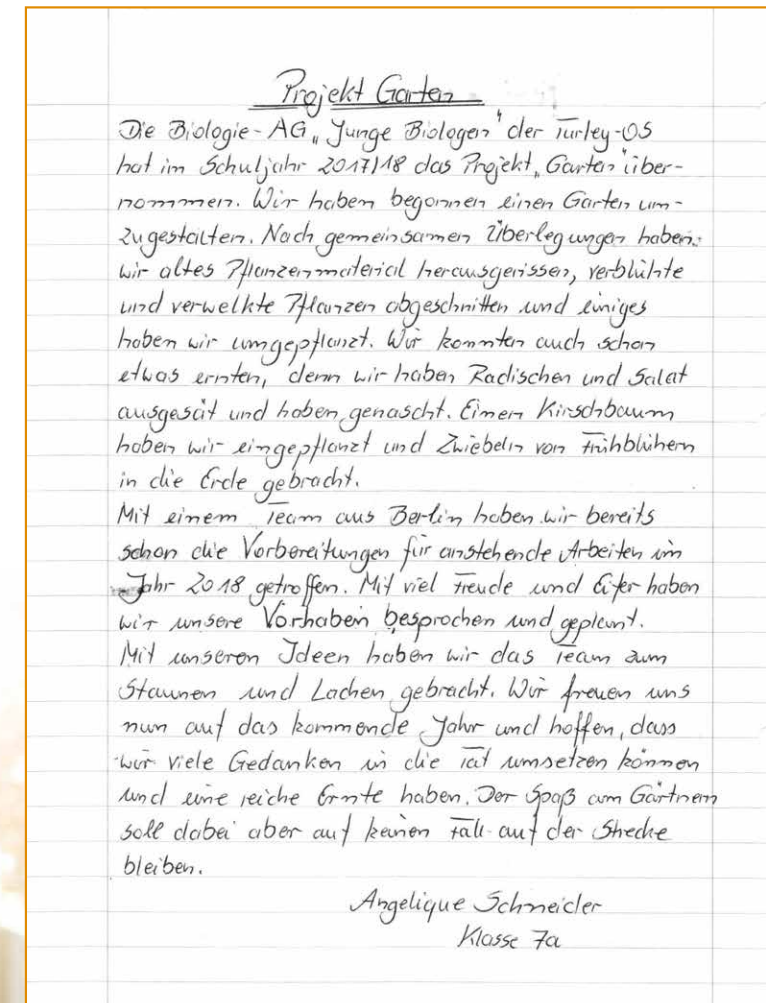 Projekt Garten
Die Biologie-AG „Junge Biologen" der Turley-OS
hat im Schuljahr 2017/18 das Projekt „Garten" über-
nommen. Wir haben begonnen einen Garten um-
zugestalten. Nach gemeinsamen Überlegungen haben
wir altes Pflanzenmaterial herausgerissen, verblühte
und verwelkte Pflanzen abgeschnitten und einiges
haben wir umgepflanzt. Wir konnten auch schon
etwas ernten, denn wir haben Radischen und Salat
ausgesät und haben genascht. Einen Kirschbaum
haben wir eingepflanzt und Zwiebeln von Frühblühern
in die Erde gebracht.
Mit einem Team aus Berlin haben wir bereits
schon die Vorbereitungen für anstehende Arbeiten im
Jahr 2018 getroffen. Mit viel Freude und Eifer haben
wir unsere Vorhaben besprochen und geplant.
Mit unseren Ideen haben wir das Team zum
Staunen und Lachen gebracht. Wir freuen uns
nun auf das kommende Jahr und hoffen, dass
wir viele Gedanken in die Tat umsetzen können
und eine reiche Ernte haben. Der Spaß am Gärtnern
soll dabei aber auf keinen Fall auf der Strecke
bleiben.
Angelique Schneider
Klasse 7a